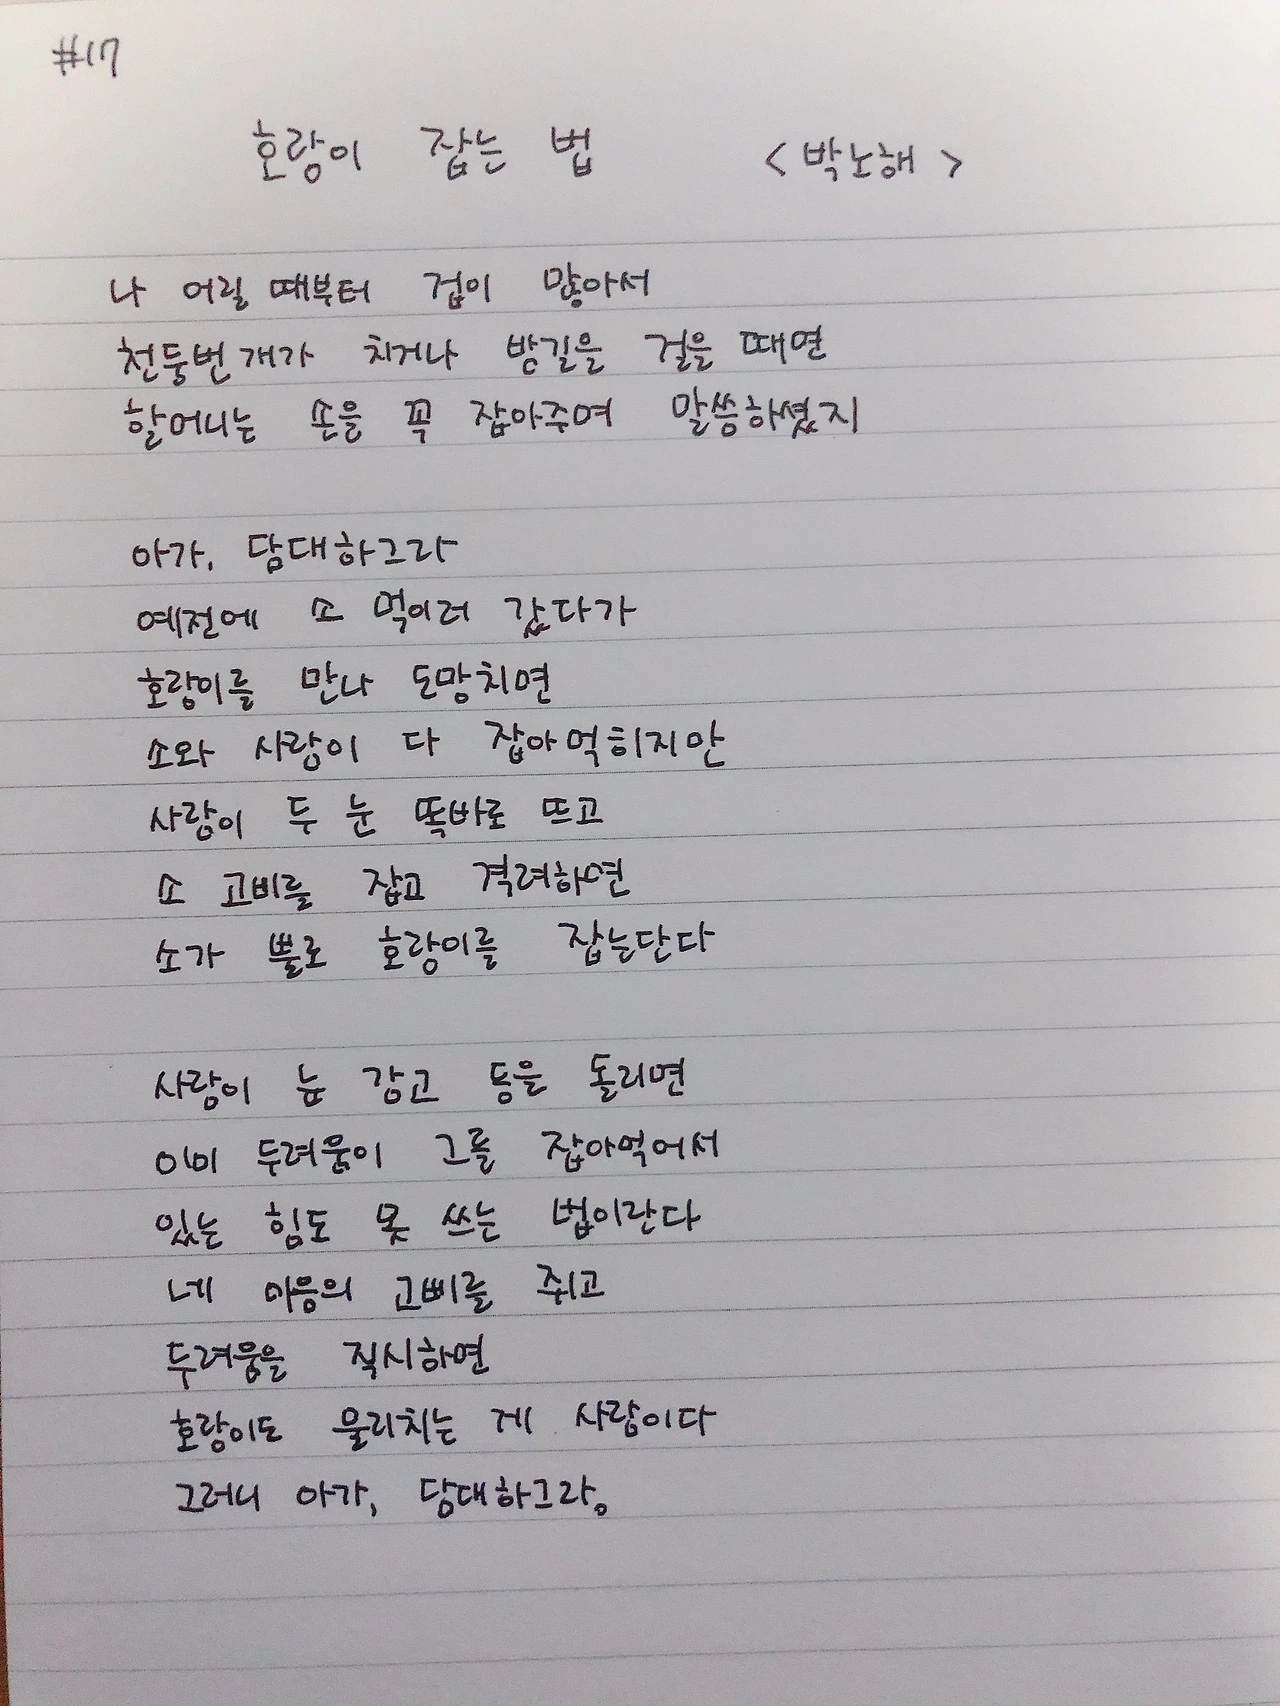 #17
호랑이 잡는 법 <박노해>
나 어릴 때부터 겁이 많아서
천둥번개가 치거나 밤길을 걸을 때면
할머니는 손을 꼭 잡아주며 말씀하셨지
아가, 담대하그라
예전에 소 먹이러 갔다가
호랑이를 만나 도망치면
소와 사람이 다 잡아먹히지만
사람이 두 눈 똑바로 뜨고
소 고비를 잡고 격려하면
소가 뿔로 호랑이를 잡는단다
사람이 눈 감고 등을 돌리면
이미 두려움이 그를 잡아먹어서
있는 힘도 못 쓰는 법이란다
네 마음의 고삐를 쥐고
두려움을 직시하면
호랑이도 물리치는 게 사람이다
그러니 아가, 담대하그라.